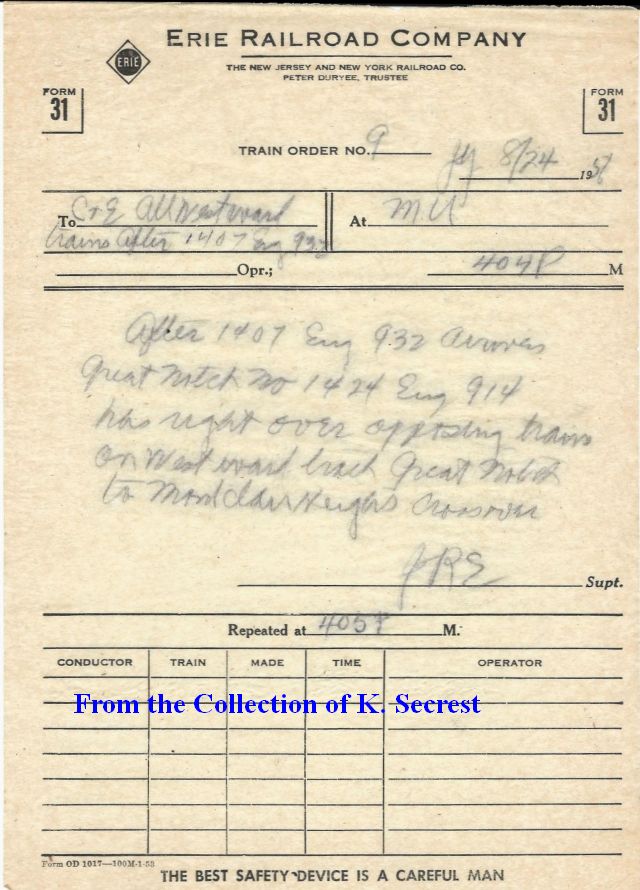 ERIE
ERIE RAILROAD COMPANY
THE NEW JERSEY AND NEW YORK RAILROAD CO.
PETER DURYEE, TRUSTEE
FORM
31
FORM
31
TRAIN ORDER NO. 9
8/24 195
To C+E All Westward At M.U
trains After 1407 Eng 932
Opr.; 404P M
After 1407 Eng 932 arrives
Great Notch No 1424 Eng 914
has right over opposing trains
on Westward track Great Notch
to Montclair Heights Crossover
JRE Supt.
Repeated at 405P M.
CONDUCTOR TRAIN MADE TIME OPERATOR
From the Collection of K. Secrest
Form OD 1017—100M-1-53
THE BEST SAFETY DEVICE IS A CAREFUL MAN